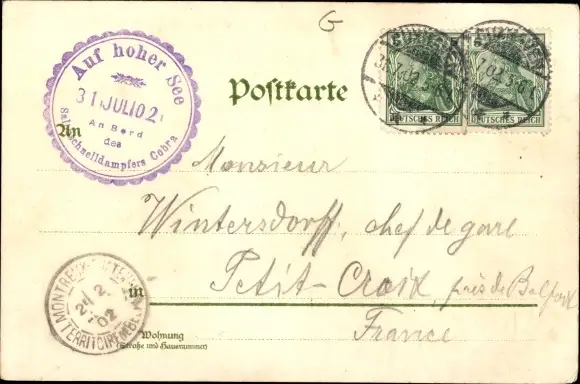 G
Auf hoher See
31 JULI 02
An Bord
des
Salonschnelldampfers Cobra
Postkarte
CUXHAVEN
CUXHAVEN
DEUTSCHES REICH
DEUTSCHES REICH
An
Monsieur
Wintersdorff, chef de gare
Petit-Croix, près de Belfort
France
in
Wohnung
(Straße und Hausnummer)